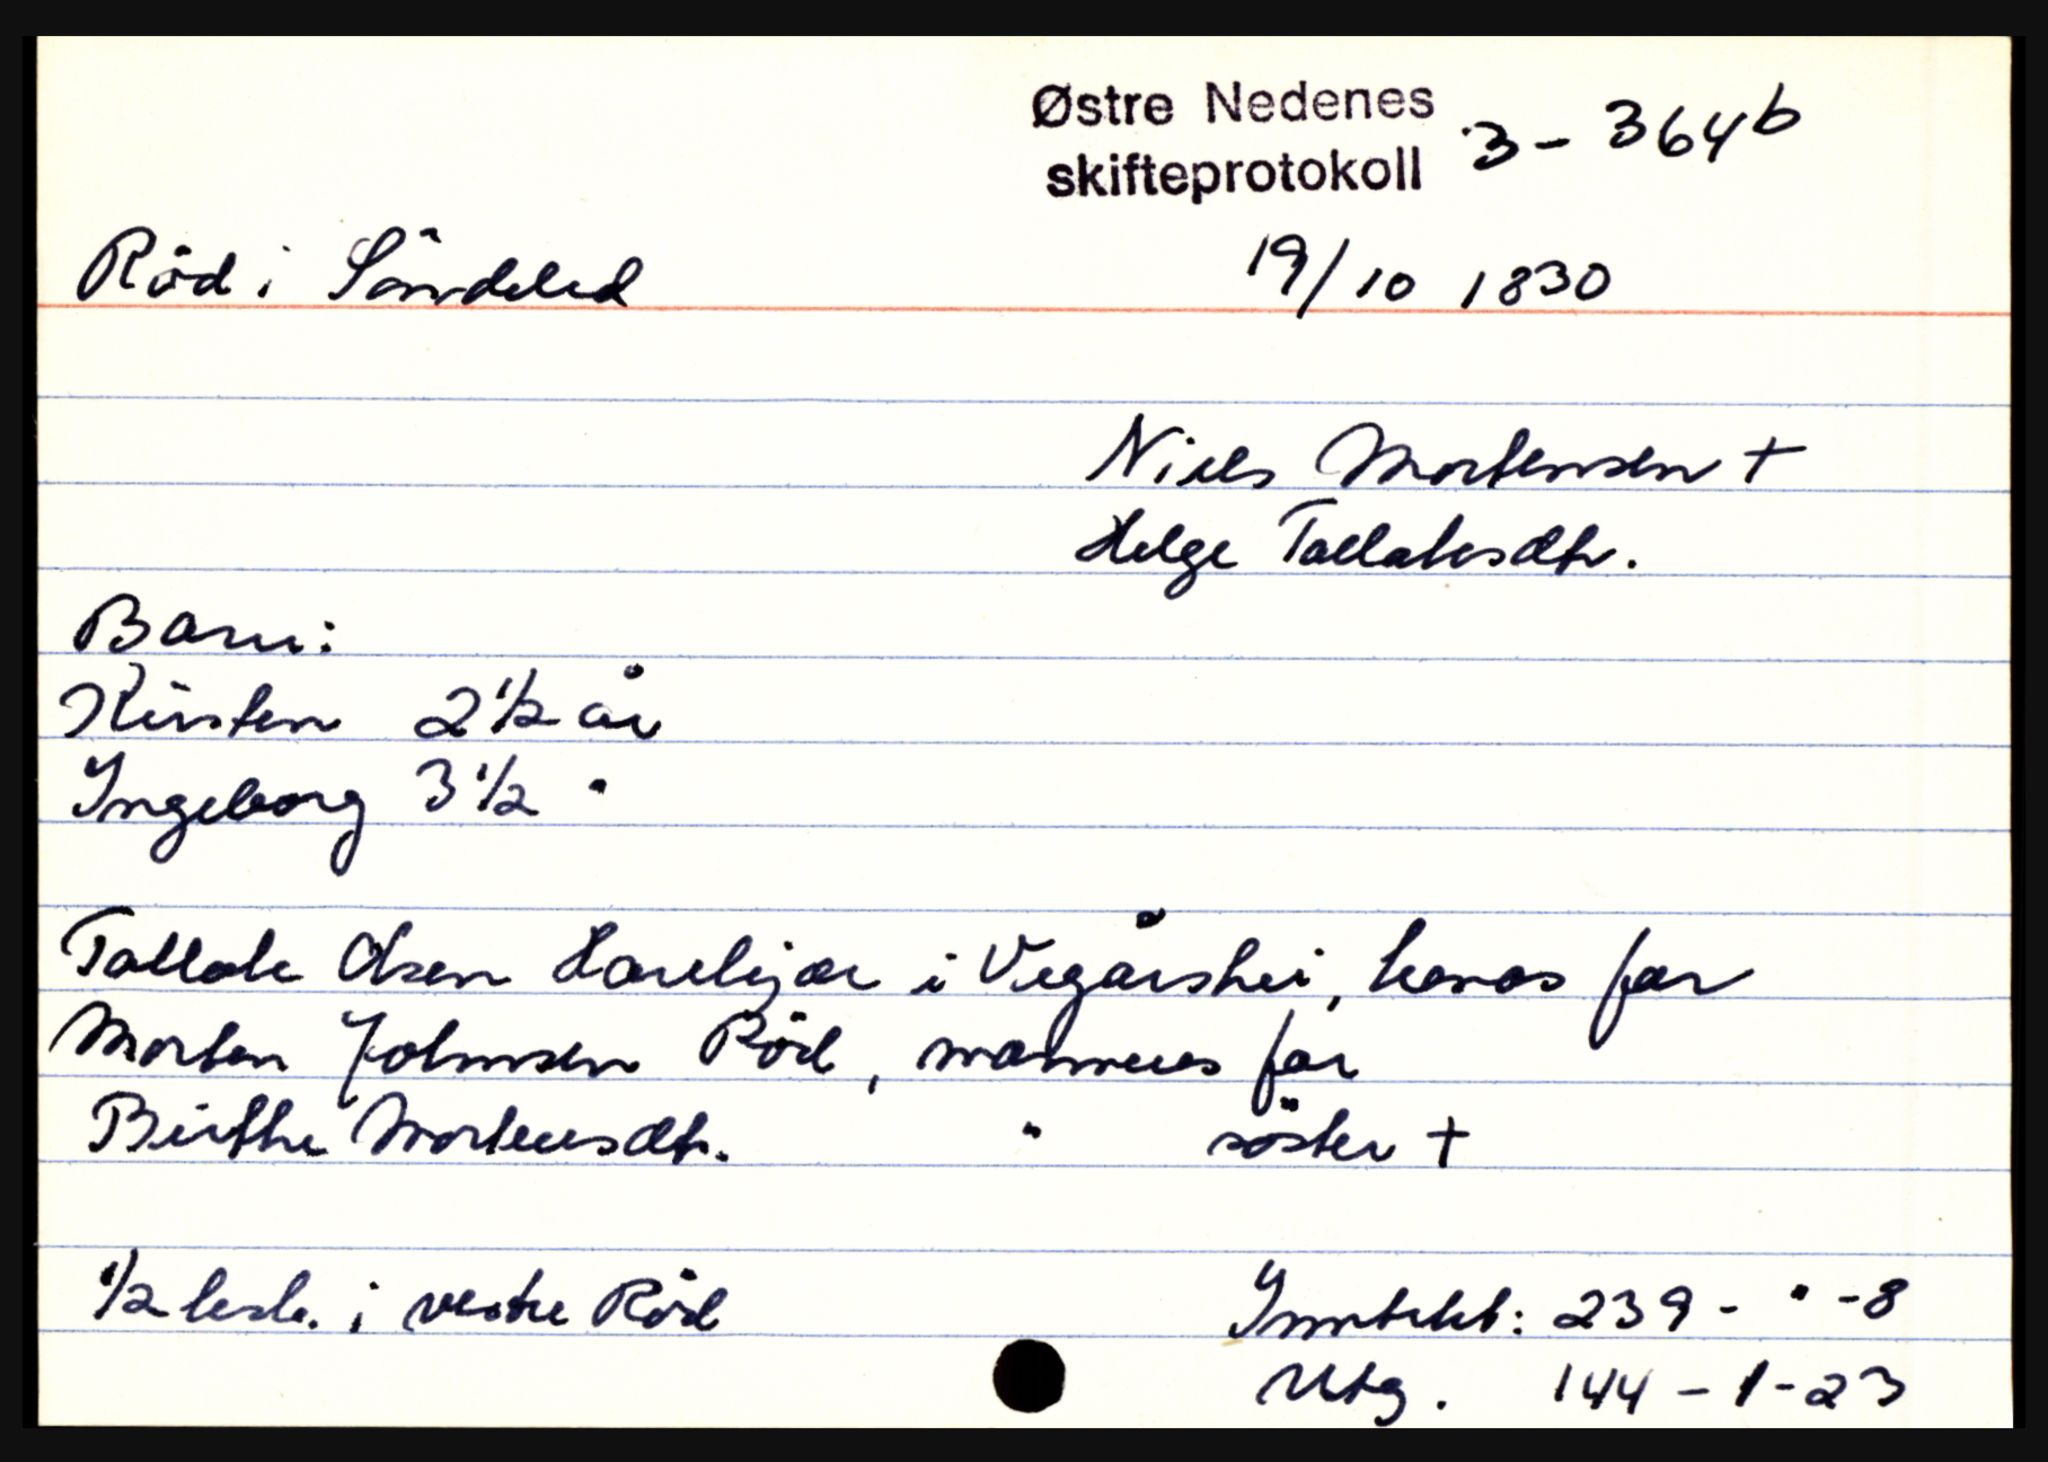 Østre Nedenes
skifteprotokoll 3 - 364b
Röd i Söndeled 19/10 1830
Niels Mortensen +
Helge Tallaksdtr.
Barn:
Kirsten 2 1/2 år
Ingeborg 3 1/2 "
Tallak Olsen i Vegårshei, konas far
Morten Johnsen Röd, mannens far
Birthe Mortensdtr. " söster +
1/2 i vestre Röd Inntekt: 239 - " - 8
Utg. 144 - 1 - 23